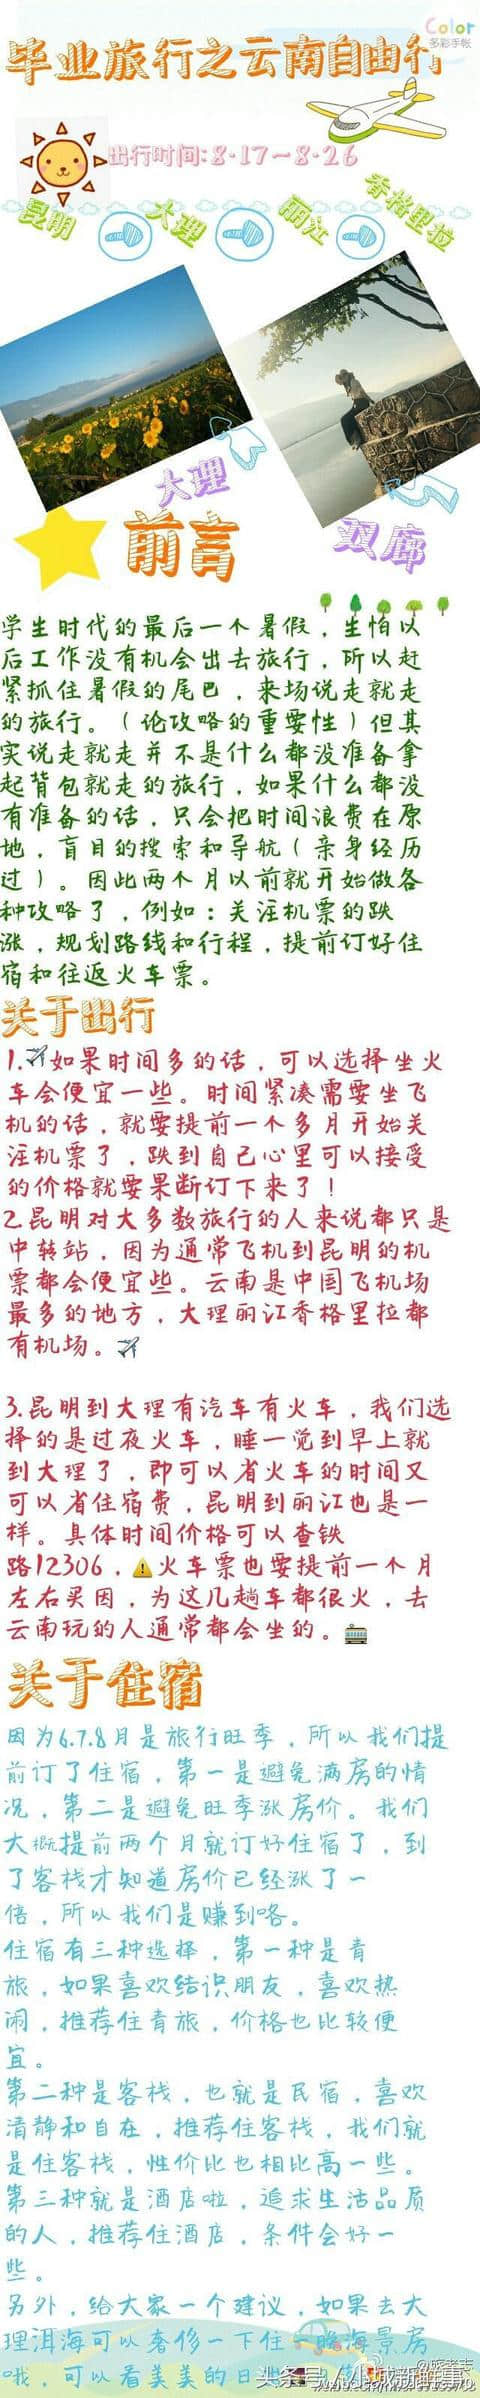 Color
多彩手帐
毕业旅行之云南自由行
出行时间:8·17~8·26
昆明
大理
丽江
香格里拉
大理
双廊
前言
学生时代的最后一个暑假，生怕以
后工作没有机会出去旅行，所以赶
紧抓住暑假的尾巴，来场说走就走
的旅行。（论攻略的重要性）但其
实说走就走并不是什么都没准备拿
起背包就走的旅行，如果什么都没
有准备的话，只会把时间浪费在原
地，盲目的搜索和导航（亲身经历
过）。因此两个月以前就开始做各
种攻略了，例如：关注机票的跌
涨，规划路线和行程，提前订好住
宿和往返火车票。
关于出行
1.✈如果时间多的话，可以选择坐火
车会便宜一些。时间紧凑需要坐飞
机的话，就要提前一个多月开始关
注机票了，跌到自己心里可以接受
的价格就要果断订下来了！
2.昆明对大多数旅行的人来说都只是
中转站，因为通常飞机到昆明的机
票都会便宜些。云南是中国飞机场
最多的地方，大理丽江香格里拉都
有机场。✈
3.昆明到大理有汽车有火车，我们选
择的是过夜火车，睡一觉到早上就
到大理了，即可以省火车的时间又
可以省住宿费，昆明到丽江也是一
样。具体时间价格可以查铁
路12306，⚠火车票也要提前一个月
左右买因，为这几趟车都很火，去
云南玩的人通常都会坐的。🚋
关于住宿
因为6.7.8月是旅行旺季，所以我们提
前订了住宿，第一是避免满房的情
况，第二是避免旺季涨房价。我们
大概提前两个月就订好住宿了，到
了客栈才知道房价已经涨了一
倍，所以我们是赚到咯。
住宿有三种选择，第一种是青
旅，如果喜欢结识朋友，喜欢热
闹，推荐住青旅，价格也比较便
宜。
第二种是客栈，也就是民宿，喜欢
清静和自在，推荐住客栈，我们就
是住客栈，性价比也相比高一些。
第三种就是酒店啦，追求生活品质
的人，推荐住酒店，条件会好一
些。
另外，给大家一个建议，如果去大
理洱海可以奢侈一下住一晚海景房
哦，可以看美美的日出
头条号／小城新鲜事